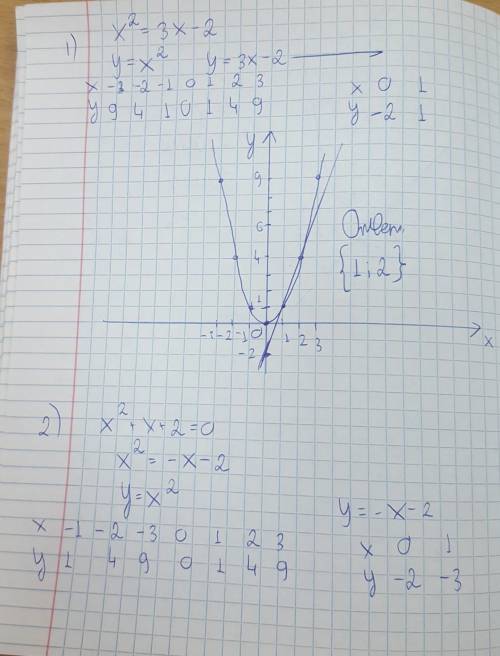 1) x² = 3x - 2
y = x² y = 3x - 2
x -3 -2 -1 0 1 2 3
y 9 4 1 0 1 4 9
x 0 1
y -2 1
y
9
6
4
1
0
-3 -2 -1 1 2 3
x
-2
Ответ.
{1; 2}
2) x² + x + 2 = 0
x² = -x - 2
y = x²
x -1 -2 -3 0 1 2 3
y 1 4 9 0 1 4 9
y = -x - 2
x 0 1
y -2 -3